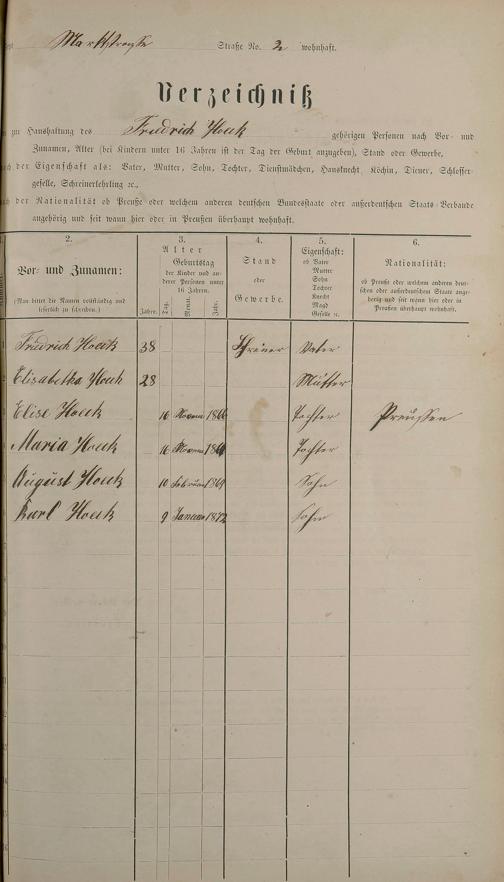 Marktstrasse Straße No. 2 wohnhaft.
Verzeichniß
zur Haushaltung des Friedrich Hoeck gehörigen Personen nach Vor- und
Zunamen, Alter (bei Kindern unter 16 Jahren ist der Tag der Geburt anzugeben), Stand oder Gewerbe,
nach der Eigenschaft als: Vater, Mutter, Sohn, Tochter, Dienstmädchen, Hausknecht, Köchin, Diener, Schlosser-
geselle, Schreinerlehrling ꝛc.,
nach der Nationalität ob Preuße oder welchem anderen deutschen Bundesstaate oder außerdeutschen Staats-Verbande
angehörig und seit wann hier oder in Preußen überhaupt wohnhaft.
1. 2. 3. 4. 5. 6.
Vor- und Zunamen:
(Man bittet die Namen vollständig und
leserlich zu schreiben.)
Alter
Geburtstag
der Kinder und an-
derer Personen unter
16 Jahren.
Jahre. Tag. Monat. Jahr.
Stand
oder
Gewerbe.
Eigenschaft:
ob Vater
Mutter
Sohn
Tochter
Knecht
Magd
Geselle ꝛc.
Nationalität:
ob Preuße oder welchem anderen deut-
schen oder außerdeutschem Staate ange-
hörig und seit wann hier oder in
Preußen überhaupt wohnhaft.
1 Friedrich Hoeck 38 Schreiner Vater
2 Elisabetha Hoeck 28 Mutter
3 Elise Hoeck 16 1866 Tochter Preussen
Maria Hoeck 16 Tochter
August Hoeck 10 Februar 1869 Sohn
Karl Hoeck 9 Januar 1872 Sohn